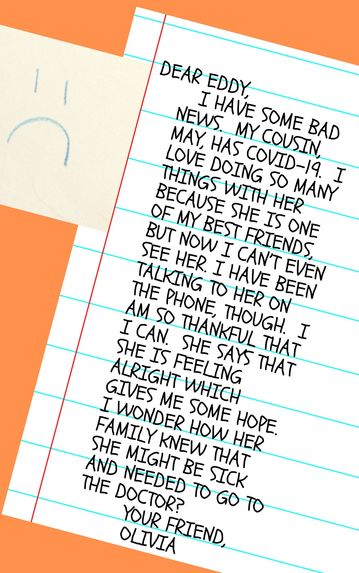 DEAR EDDY,
I HAVE SOME BAD
NEWS. MY COUSIN,
MAY, HAS COVID-19. I
LOVE DOING SO MANY
THINGS WITH HER
BECAUSE SHE IS ONE
OF MY BEST FRIENDS,
BUT NOW I CAN'T EVEN
SEE HER. I HAVE BEEN
TALKING TO HER ON
THE PHONE, THOUGH. I
AM SO THANKFUL THAT
I CAN. SHE SAYS THAT
SHE IS FEELING
ALRIGHT WHICH
GIVES ME SOME HOPE.
I WONDER HOW HER
FAMILY KNEW THAT
SHE MIGHT BE SICK
AND NEEDED TO GO TO
THE DOCTOR?
YOUR FRIEND,
OLIVIA